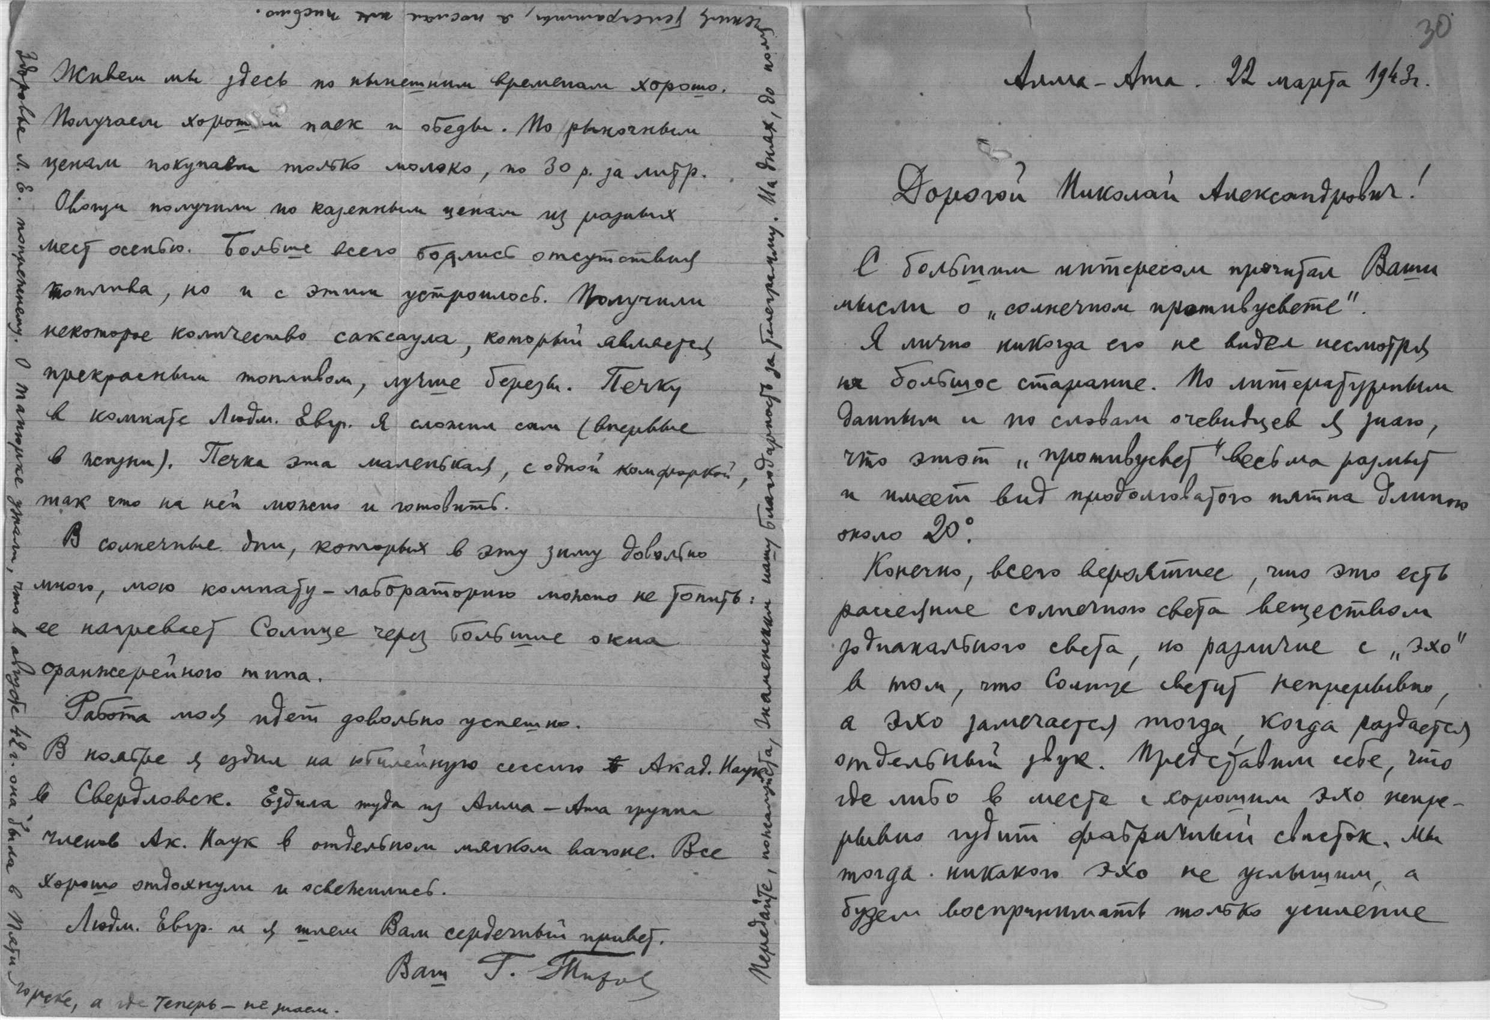 30
Алма-Ата. 22 марта 1943 г.
Дорогой Николай Александрович!
С большим интересом прочитал Ваши
мысли о „солнечном противусвете".
Я лично никогда его не видел несмотря
на большое старание. По литературным
данным и по словам очевидцев я знаю,
что этот „противусвет" весьма размыт
и имеет вид продолговатого пятна длиною
около 20°.
Конечно, всего вероятнее, что это есть
рассеяние солнечного света веществом
зодиакального света, но различие с „эхо"
в том, что Солнце светит непрерывно,
а эхо замечается тогда, когда раздается
отдельный звук. Представим себе, что
где либо в месте с хорошим эхо непре-
рывно гудит фабричный свисток. Мы
тогда никакого эхо не услышим, а
будем воспринимать только усиление
Живем мы здесь по нынешним временам хорошо.
Получаем хороший паек и обеды. По рыночным
ценам покупаем только молоко, по 30 р. за литр.
Овощи получили по казенным ценам из разных
мест осенью. Больше всего боялись отсутствия
топлива, но и с этим устроилось. Получили
некоторое количество саксаула, который является
прекрасным топливом, лучше березы. Печку
в комнате Людм. Евгр. я сложил сам (впервые
в жизни). Печка эта маленькая, с одной комфоркой,
так что на ней можно и готовить.
В солнечные дни, которых в эту зиму довольно
много, мою комнату-лабораторию можно не топить:
ее нагревает Солнце через большие окна
оранжерейного типа.
Работа моя идет довольно успешно.
В ноябре я ездил на юбилейную сессию Акад. Наук
в Свердловск. Ездила туда из Алма-Ата группа
членов Ак. Наук в отдельном мягком вагоне. Все
хорошо отдохнули и освежились.
Людм. Евгр. и я шлем Вам сердечный привет.
Ваш Г. Тихов
Передайте, пожалуйста, Знаменским нашу благодарность за телеграмму. На днях, до полу
чения телеграммы, я послал им письмо.
Здоровье Л. Е. попрежнему. О Танюрке узнали, что в августе 42 г. она была в Пяти
горске, а где теперь – не знаем.